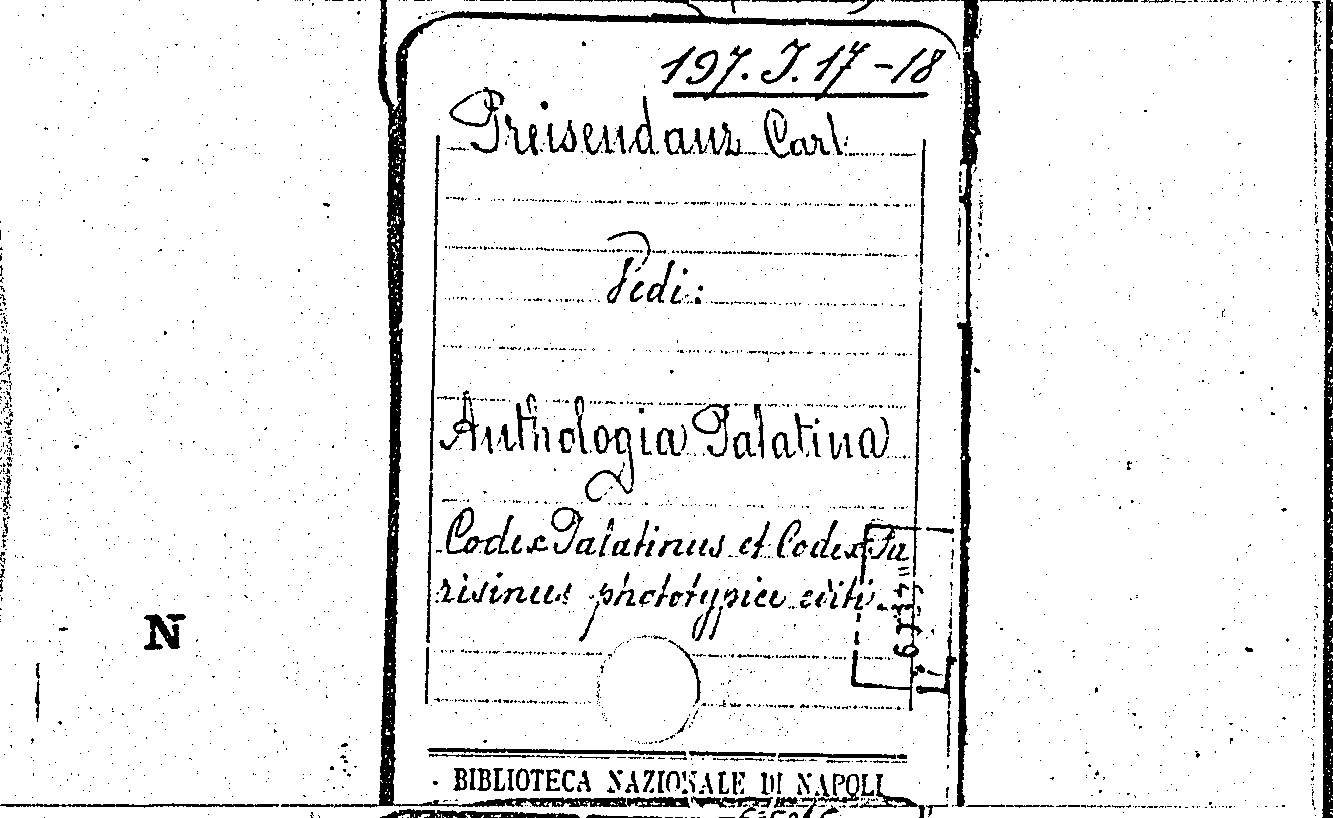 197.J.17-18
Preisendanz Carl
Vedi:
Anthologia Palatina
Codex Palatinus et Codex Pa
risinus phototypice editi.
N
BIBLIOTECA NAZIONALE DI NAPOLI